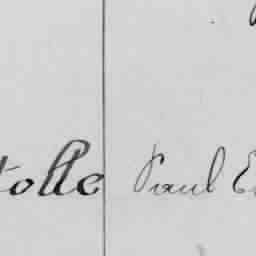 tolle Paul E